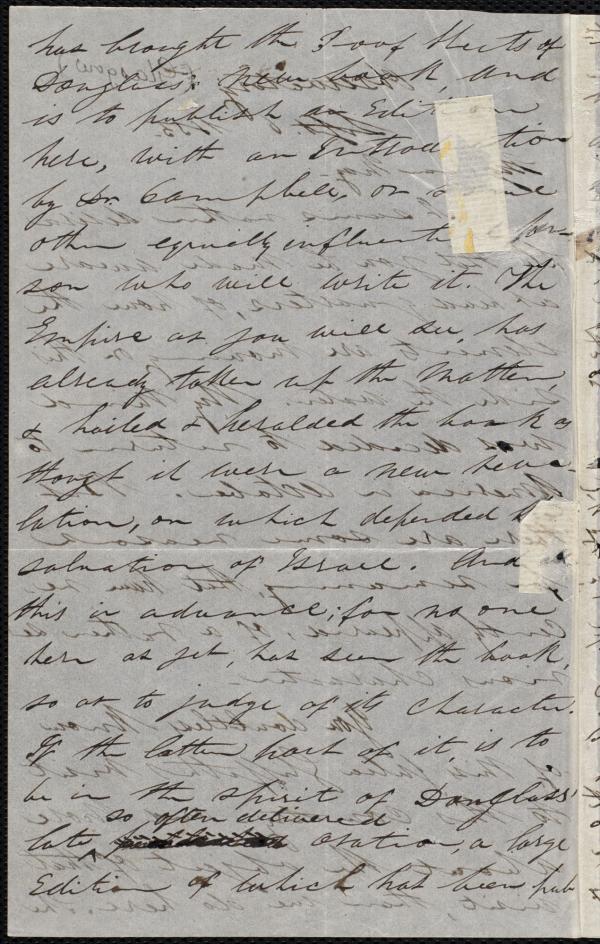 has brought the Proof sheets of
Douglass' new book, and
is to publish an Edition
here, with an Introduction
by Dr. Campbell, or some
other equally influential per-
son who will write it. The
Empire as you will see, has
already taken up the matter,
& hailed & heralded the book as
thougt it were a new reve-
lation, on which depended the
salvation of Israel. And
this in advance; for no one
here as yet, has seen the book,
so as to judge of its character.
If the latter part of it, is to
be in the spirit of Douglass'
so often delivered
late oration, a large
Edition of which has been pub